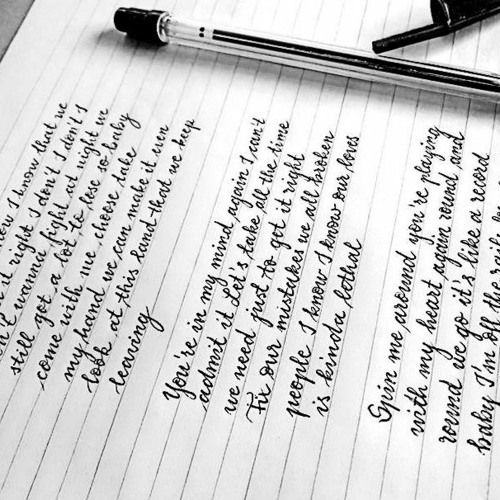 now I know that we
it right I don't I don't I
wanna fight at night we
still got a lot to lose so baby
come with me choose take
my hand we can make it even
look at this hand that we keep
leaving
You're in my mind again I can't
admit it Let's take all the time
we need just to got it right
Fix our mistakes we all broken
people I know I know our loves
is kinda lethal
Spin me around you're playing
with my heart again round and
round we go it's like a record
baby I'm off the